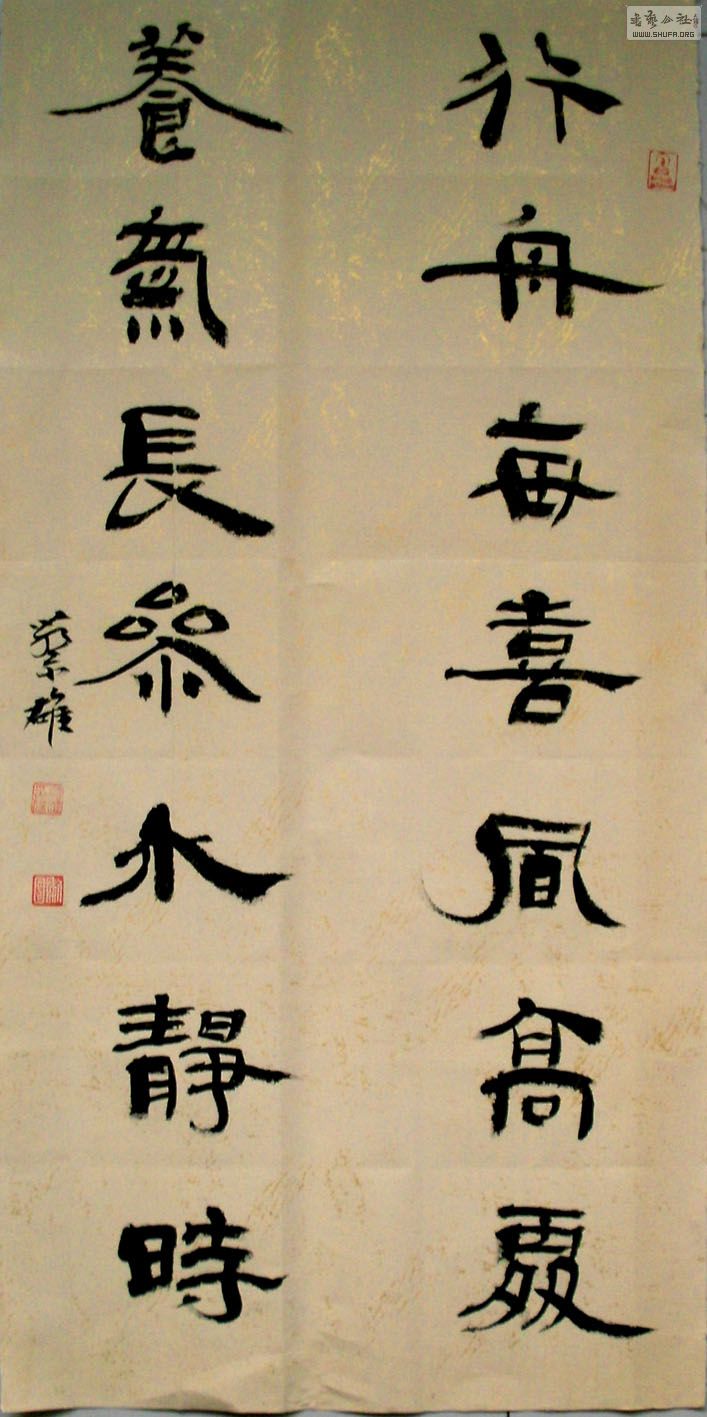 行舟每喜風高處
養氣長參水靜時
蔡雄
书艺公社
WWW.SHUFA.ORG